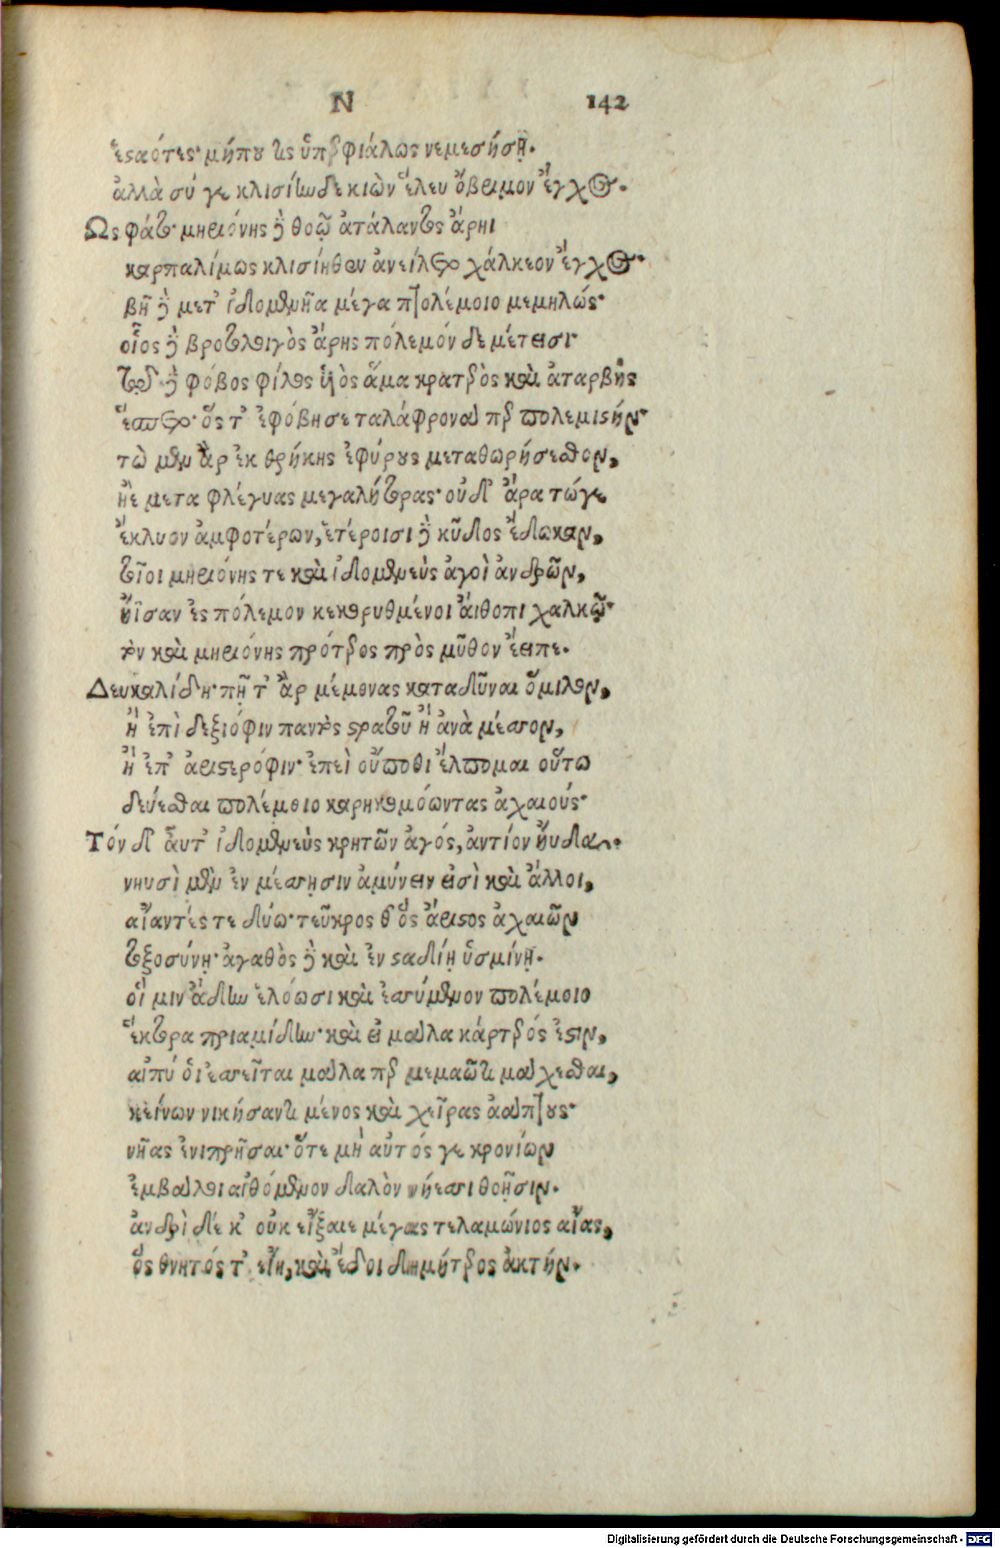 Ν 142
ἑσαότες· μήπου τις ὑπερφιάλως νεμεσήσῃ.
ἀλλὰ σύ γε κλισίην δε κιὼν ἕλευ ὄβριμον ἔγχος.
Ως φάτο· μηριόνης δὲ θοῷ ἀτάλαντος ἄρηϊ
καρπαλίμως κλισίηθεν ἀνείλετο χάλκεον ἔγχος·
βῆ δὲ μετ' ἰδομενῆα μέγα πτολέμοιο μεμηλώς·
οἷος δὲ βροτολοιγὸς ἄρης πόλεμόν δε μέτεισι
τῷ δὲ φόβος φίλος ὑιὸς ἅμα κρατερὸς καὶ ἀταρβὴς
ἕσπετο· ὅς τ' ἐφόβησε ταλάφρονά περ πολεμιστήν·
τὼ μὲν ἂρ ἐκ θρήκης ἐφύρους μεταθωρήσεσθον,
ἠὲ μετα φλέγυας μεγαλήτορας· οὐδ' ἄρα τώγε
ἔκλυον ἀμφοτέρων, ἑτέροισι δὲ κῦδος ἔδωκαν,
τοῖοι μηριόνης τε καὶ ἰδομενεὺς ἀγοὶ ἀνδρῶν,
ἤϊσαν ἐς πόλεμον κεκορυθμένοι αἴθοπι χαλκῷ·
τὸν καὶ μηριόνης πρότερος πρὸς μῦθον ἔειπε.
Δευκαλίδη· πῇ τ' ἂρ μέμονας καταδῦναι ὅμιλον,
ἢ ἐπὶ δεξιόφιν παντὸς στρατοῦ ἢ ἀνὰ μέσσον,
ἢ ἐπ' ἀριστερόφιν· ἐπεὶ οὔποθι ἔλπομαι οὕτω
δεύεσθαι πολέμοιο καρηκομόωντας ἀχαιούς·
Τόν δ' αὖτ' ἰδομενεὺς κρητῶν ἀγός, ἀντίον ηὔδα.
νηυσὶ μὲν ἐν μέσσῃσιν ἀμύνειν εἰσὶ καὶ ἄλλοι,
αἴαντές τε δύω· τεῦκρος θ' ὃς ἄριστος ἀχαιῶν
τοξοσύνῃ· ἀγαθὸς δὲ καὶ ἐν σταδίῃ ὑσμίνῃ.
οἵ μιν ἄδην ἐλόωσι καὶ ἐσσύμενον πολέμοιο
ἕκτορα πριαμίδην· καὶ εἰ μάλα κάρτερός ἐστιν,
αἰπύ οἱ ἐσσεῖται μάλα περ μεμαῶτι μάχεσθαι,
κείνων νικήσαντι μένος καὶ χεῖρας ἀάπτους·
νῆας ἐνιπρῆσαι· ὅτε μὴ αὐτός γε κρονίων
ἐμβάλοι αἰθόμενον δαλὸν νήεσσι θοῇσιν.
ἀνδρὶ δέ κ' οὐκ εἴξαιε μέγας τελαμώνιος αἴας,
ὃς θνητός τ' εἴη, καὶ ἔδοι δημήτερος ἀκτήν.
Digitalisierung gefördert durch die Deutsche Forschungsgemeinschaft - DFG